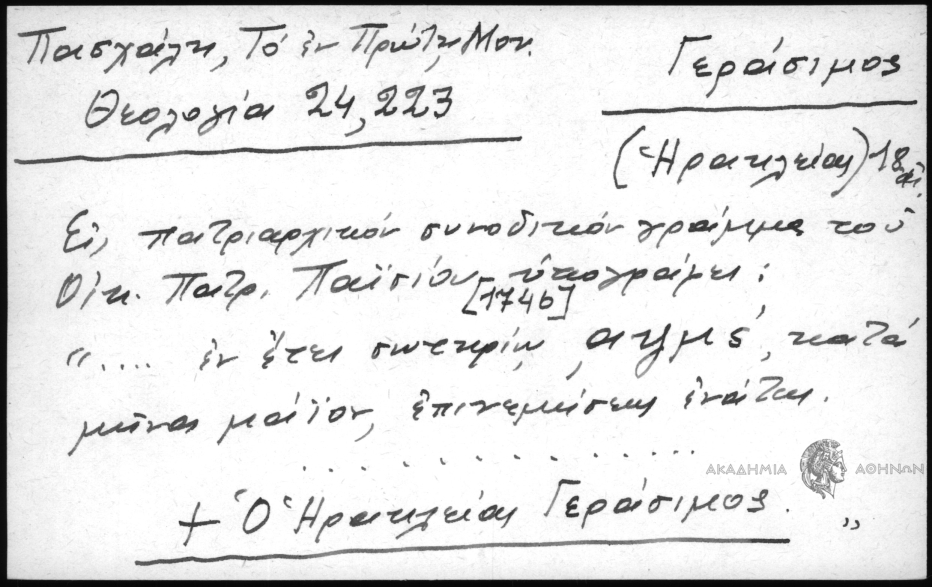 Πασχάλη, Τό ἐν Πρώτῃ Μον.
Θεολογία 24, 223
Γεράσιμος
(Ἡρακλείας) 18 αἰ.
Εἰς πατριαρχικόν συνοδικόν γράμμα τοῦ
Οἰκ. Πατρ. Παϊσίου ὑπογράφει:
[1746]
".... ἐν ἔτει σωτηρίῳ ͵αψμϛ´, κατά
μῆνα μάϊον, ἐπινεμήσεως ἐνάτης.
. . . . . . . . . . . . . . .
+ Ὁ Ἡρακλείας Γεράσιμος. "
ΑΚΑΔΗΜΙΑ ΑΘΗΝΩΝ